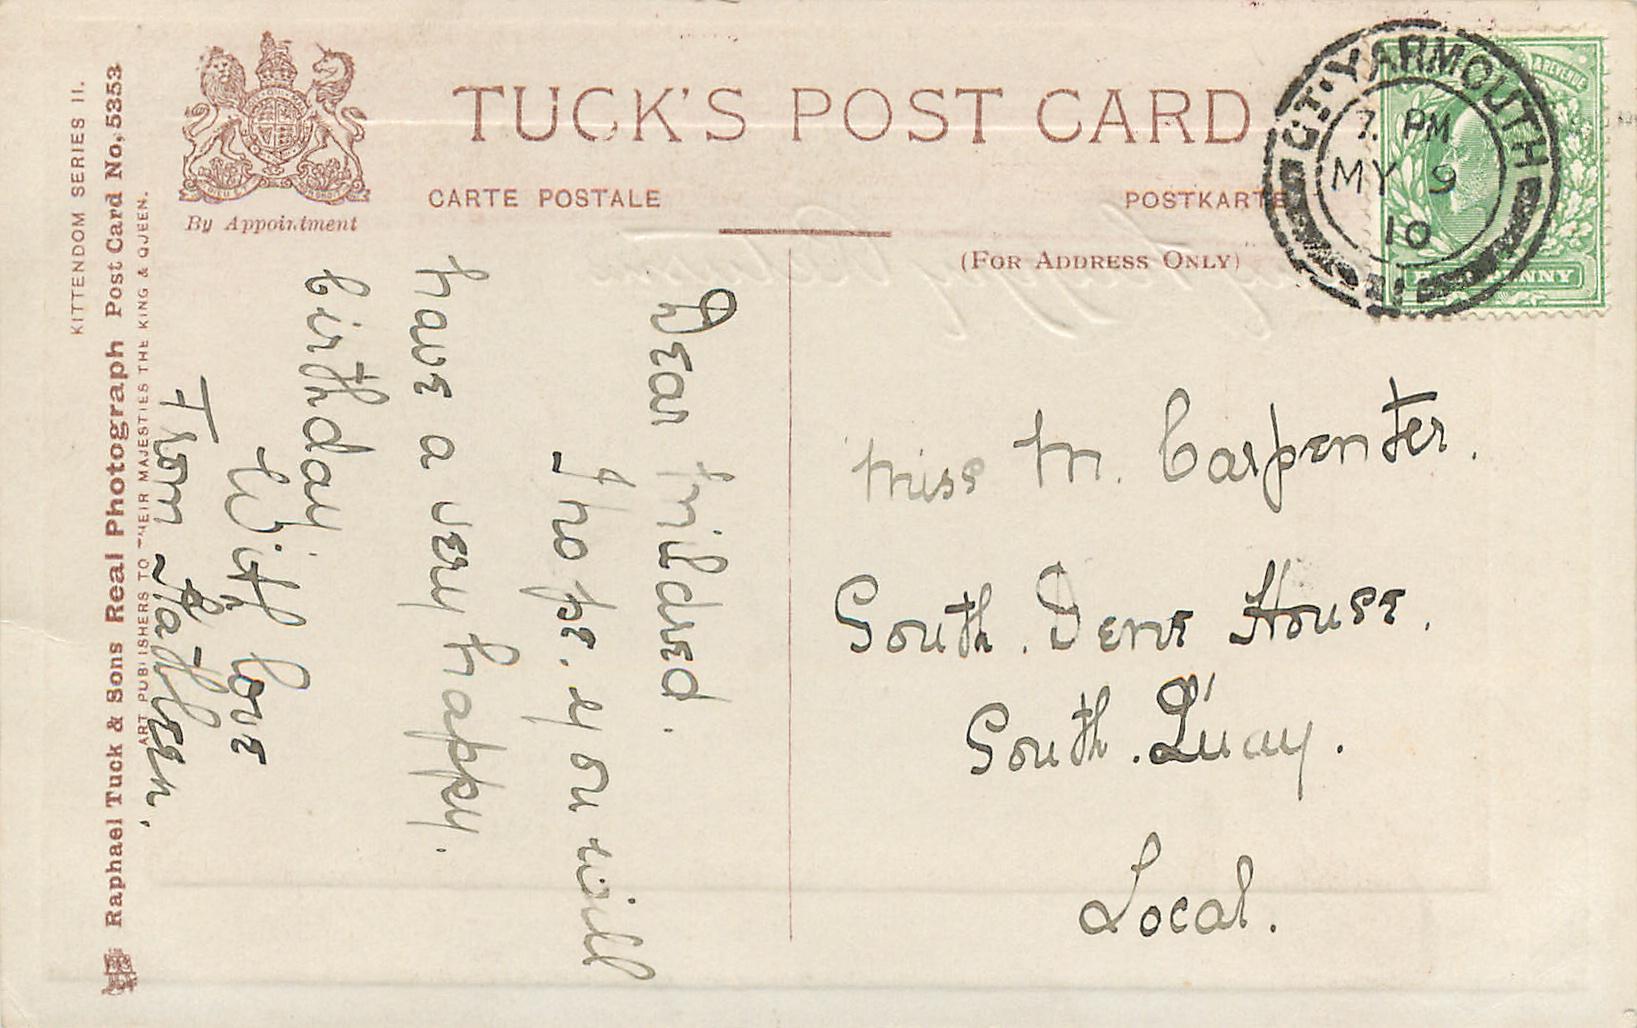 TUCK'S POST CARD
CARTE POSTALE
POSTKARTE
(FOR ADDRESS ONLY)
By Appointment
KITTENDOM SERIES II.
Raphael Tuck & Sons Real Photograph Post Card No. 5353
ART PUBLISHERS TO THEIR MAJESTIES THE KING & QUEEN.
GT. YARMOUTH
7. PM
MY 9
10
& REVENUE
HALFPENNY
Dear Mildred.
I hope. you will
have a very happy.
birthday
With love
From Kathleen.
Miss M. Carpenter.
South. Dene House.
South. Quay.
Local.